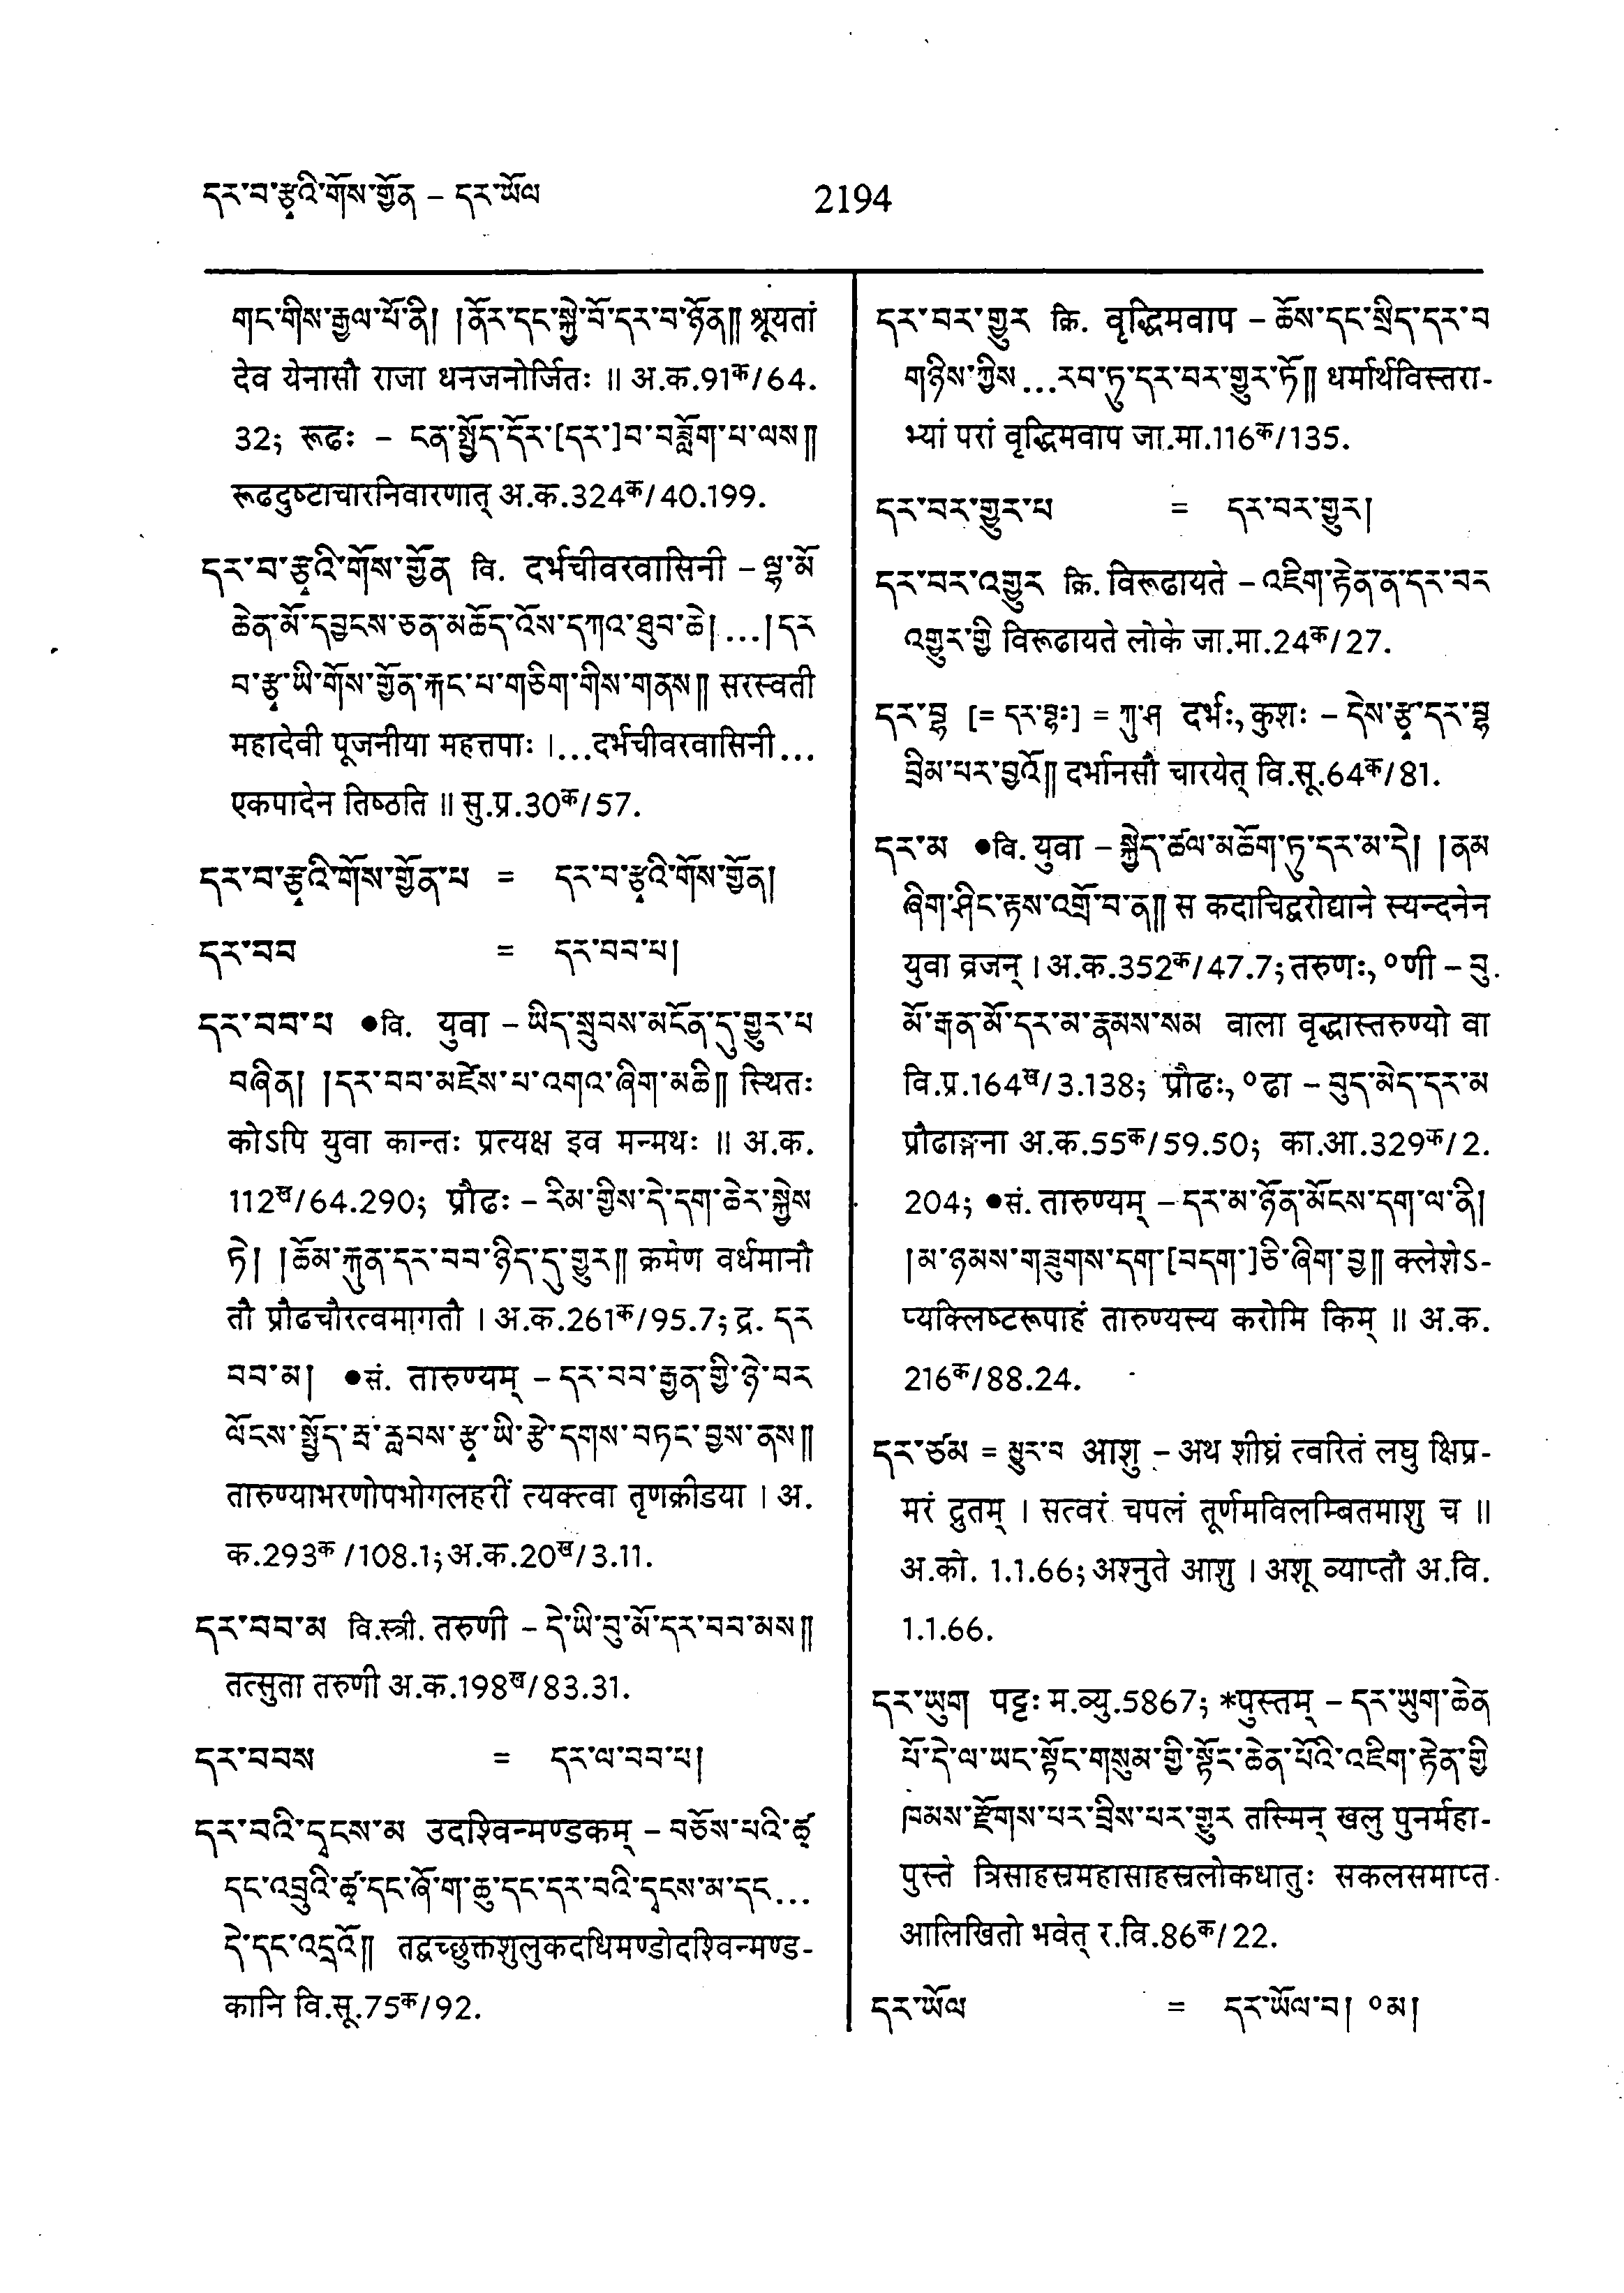 དར་བ་རྩྭའི་གོས་གྱོན – དར་ཡོལ
2194
གང་གིས་རྒྱལ་པོ་ནི། །ནོར་དང་སྐྱེ་བོ་དར་བ་ཉོན༎ श्रूयतां
देव येनासौ राजा धनजनोर्जितः ॥ अ.क.91क/64.
32; रूढः – ངན་སྤྱོད་དོར་[དར་]བ་བཟློག་པ་ལས༎
रूढदुष्टाचारनिवारणात् अ.क.324क/40.199.
དར་བ་རྩྭའི་གོས་གྱོན वि. दर्भचीवरवासिनी – ལྷ་མོ
ཆེན་མོ་དབྱངས་ཅན་མཆོད་འོས་དཀའ་ཐུབ་ཆེ། ...། དར
བ་རྩྭ་ཡི་གོས་གྱོན་རྐང་པ་གཅིག་གིས་གནས༎ सरस्वती
महादेवी पूजनीया महत्तपाः ।...दर्भचीवरवासिनी...
एकपादेन तिष्ठति ॥ सु.प्र.30क/57.
དར་བ་རྩྭའི་གོས་གྱོན་པ = དར་བ་རྩྭའི་གོས་གྱོན།
དར་བབ = དར་བབ་པ།
དར་བབ་པ ●वि. युवा – ཡིད་སྲུབས་མངོན་དུ་གྱུར་པ
བཞིན། །དར་བབ་མཛེས་པ་འགའ་ཞིག་མཆི༎ स्थितः
कोऽपि युवा कान्तः प्रत्यक्ष इव मन्मथः ॥ अ.क.
112ख/64.290; प्रौढः – རིམ་གྱིས་དེ་དག་ཆེར་སྐྱེས
ཏེ། །ཆོམ་རྐུན་དར་བབ་ཉིད་དུ་གྱུར༎ क्रमेण वर्धमानौ
तौ प्रौढचौरत्वमागतौ । अ.क.261क/95.7; द्र. དར
བབ་མ། ●सं. तारुण्यम् – དར་བབ་རྒྱན་གྱི་ཉེ་བར
ལོངས་སྤྱོད་རྦ་རླབས་རྩྭ་ཡི་རྩེ་དགས་བཏང་བྱས་ནས༎
तारुण्याभरणोपभोगलहरीं त्यक्त्वा तृणक्रीडया । अ.
क.293क /108.1; अ.क.20ख/3.11.
དར་བབ་མ वि.स्त्री. तरुणी – དེ་ཡི་བུ་མོ་དར་བབ་མས༎
तत्सुता तरुणी अ.क.198ख/83.31.
དར་བབས = དར་ལ་བབ་པ།
དར་བའི་དྭངས་མ उदश्विन्मण्डकम् – བཅོས་པའི་ཚྭ
དང་འབྲུའི་ཚྭ་དང་ཞོ་ག་ཆུ་དང་དར་བའི་དྭངས་མ་དང...
དེ་དང་འདྲའོ༎ तद्वच्छुक्तशुलुकदधिमण्डोदश्विन्मण्ड-
कानि वि.सू.75क/92.
དར་བར་གྱུར क्रि. वृद्धिमवाप – ཆོས་དང་སྲིད་དར་བ
གཉིས་ཀྱིས...རབ་ཏུ་དར་བར་གྱུར་ཏོ༎ धर्मार्थविस्तरा-
भ्यां परां वृद्धिमवाप जा.मा.116क/135.
དར་བར་གྱུར་པ = དར་བར་གྱུར།
དར་བར་འགྱུར क्रि. विरूढायते – འཇིག་རྟེན་ན་དར་བར
འགྱུར་གྱི विरूढायते लोके जा.मा.24क/27.
དར་བྷ [= དར་བྷཿ] = ཀུ་ཤ दर्भः, कुशः – དེས་རྩྭ་དར་བྷ
བྲིམ་པར་བྱའོ༎ दर्भानसौ चारयेत् वि.सू.64क/81.
དར་མ ●वि. युवा – སྐྱེད་ཚལ་མཆོག་ཏུ་དར་མ་དེ། །ནམ
ཞིག་ཤིང་རྟས་འགྲོ་བ་ན༎ स कदाचिद्वरोद्याने स्यन्दनेन
युवा व्रजन् । अ.क.352क/47.7; तरुणः, ०णी – བུ
མོ་རྒན་མོ་དར་མ་རྣམས་སམ वाला वृद्धास्तरुण्यो वा
वि.प्र.164ख/3.138; प्रौढः, ०ढा – བུད་མེད་དར་མ
प्रौढाङ्गना अ.क.55क/59.50; का.आ.329क/2.
204; ●सं. तारुण्यम् – དར་མ་ཉོན་མོངས་དག་ལ་ནི།
།མ་ཉམས་གཟུགས་དག་[བདག་]ཅི་ཞིག་བྱ༎ क्लेशेऽ-
प्यक्लिष्टरूपाहं तारुण्यस्य करोमि किम् ॥ अ.क.
216क/88.24.
དར་ཙམ = མྱུར་བ आशु – अथ शीघ्रं त्वरितं लघु क्षिप्र-
मरं द्रुतम् । सत्वरं चपलं तूर्णमविलम्बितमाशु च ॥
अ.को. 1.1.66; अश्नुते आशु । अशू व्याप्तौ अ.वि.
1.1.66.
དར་ཡུག पट्टः म.व्यु.5867; *पुस्तम् – དར་ཡུག་ཆེན
པོ་དེ་ལ་ཡང་སྟོང་གསུམ་གྱི་སྟོང་ཆེན་པོའི་འཇིག་རྟེན་གྱི
ཁམས་རྫོགས་པར་བྲིས་པར་གྱུར तस्मिन् खलु पुनर्महा-
पुस्ते त्रिसाहस्रमहासाहस्रलोकधातुः सकलसमाप्त
आलिखितो भवेत् र.वि.86क/22.
དར་ཡོལ = དར་ཡོལ་བ། ०མ།